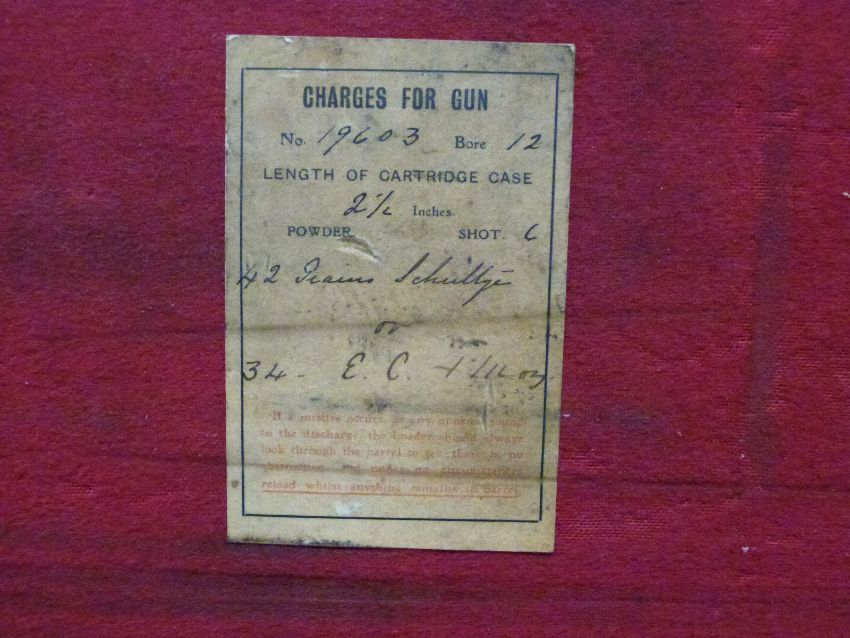 CHARGES FOR GUN
No. 19603 Bore 12
LENGTH OF CARTRIDGE CASE
2½ Inches.
POWDER. SHOT. 6
42 Grains Schultze
or
34 - E. C.
If a misfire occurs, or any unusual sound
in the discharge, the Loader should always
look through the barrel to see there is no
obstruction and under no circumstances
reload whilst anything remains in barrel